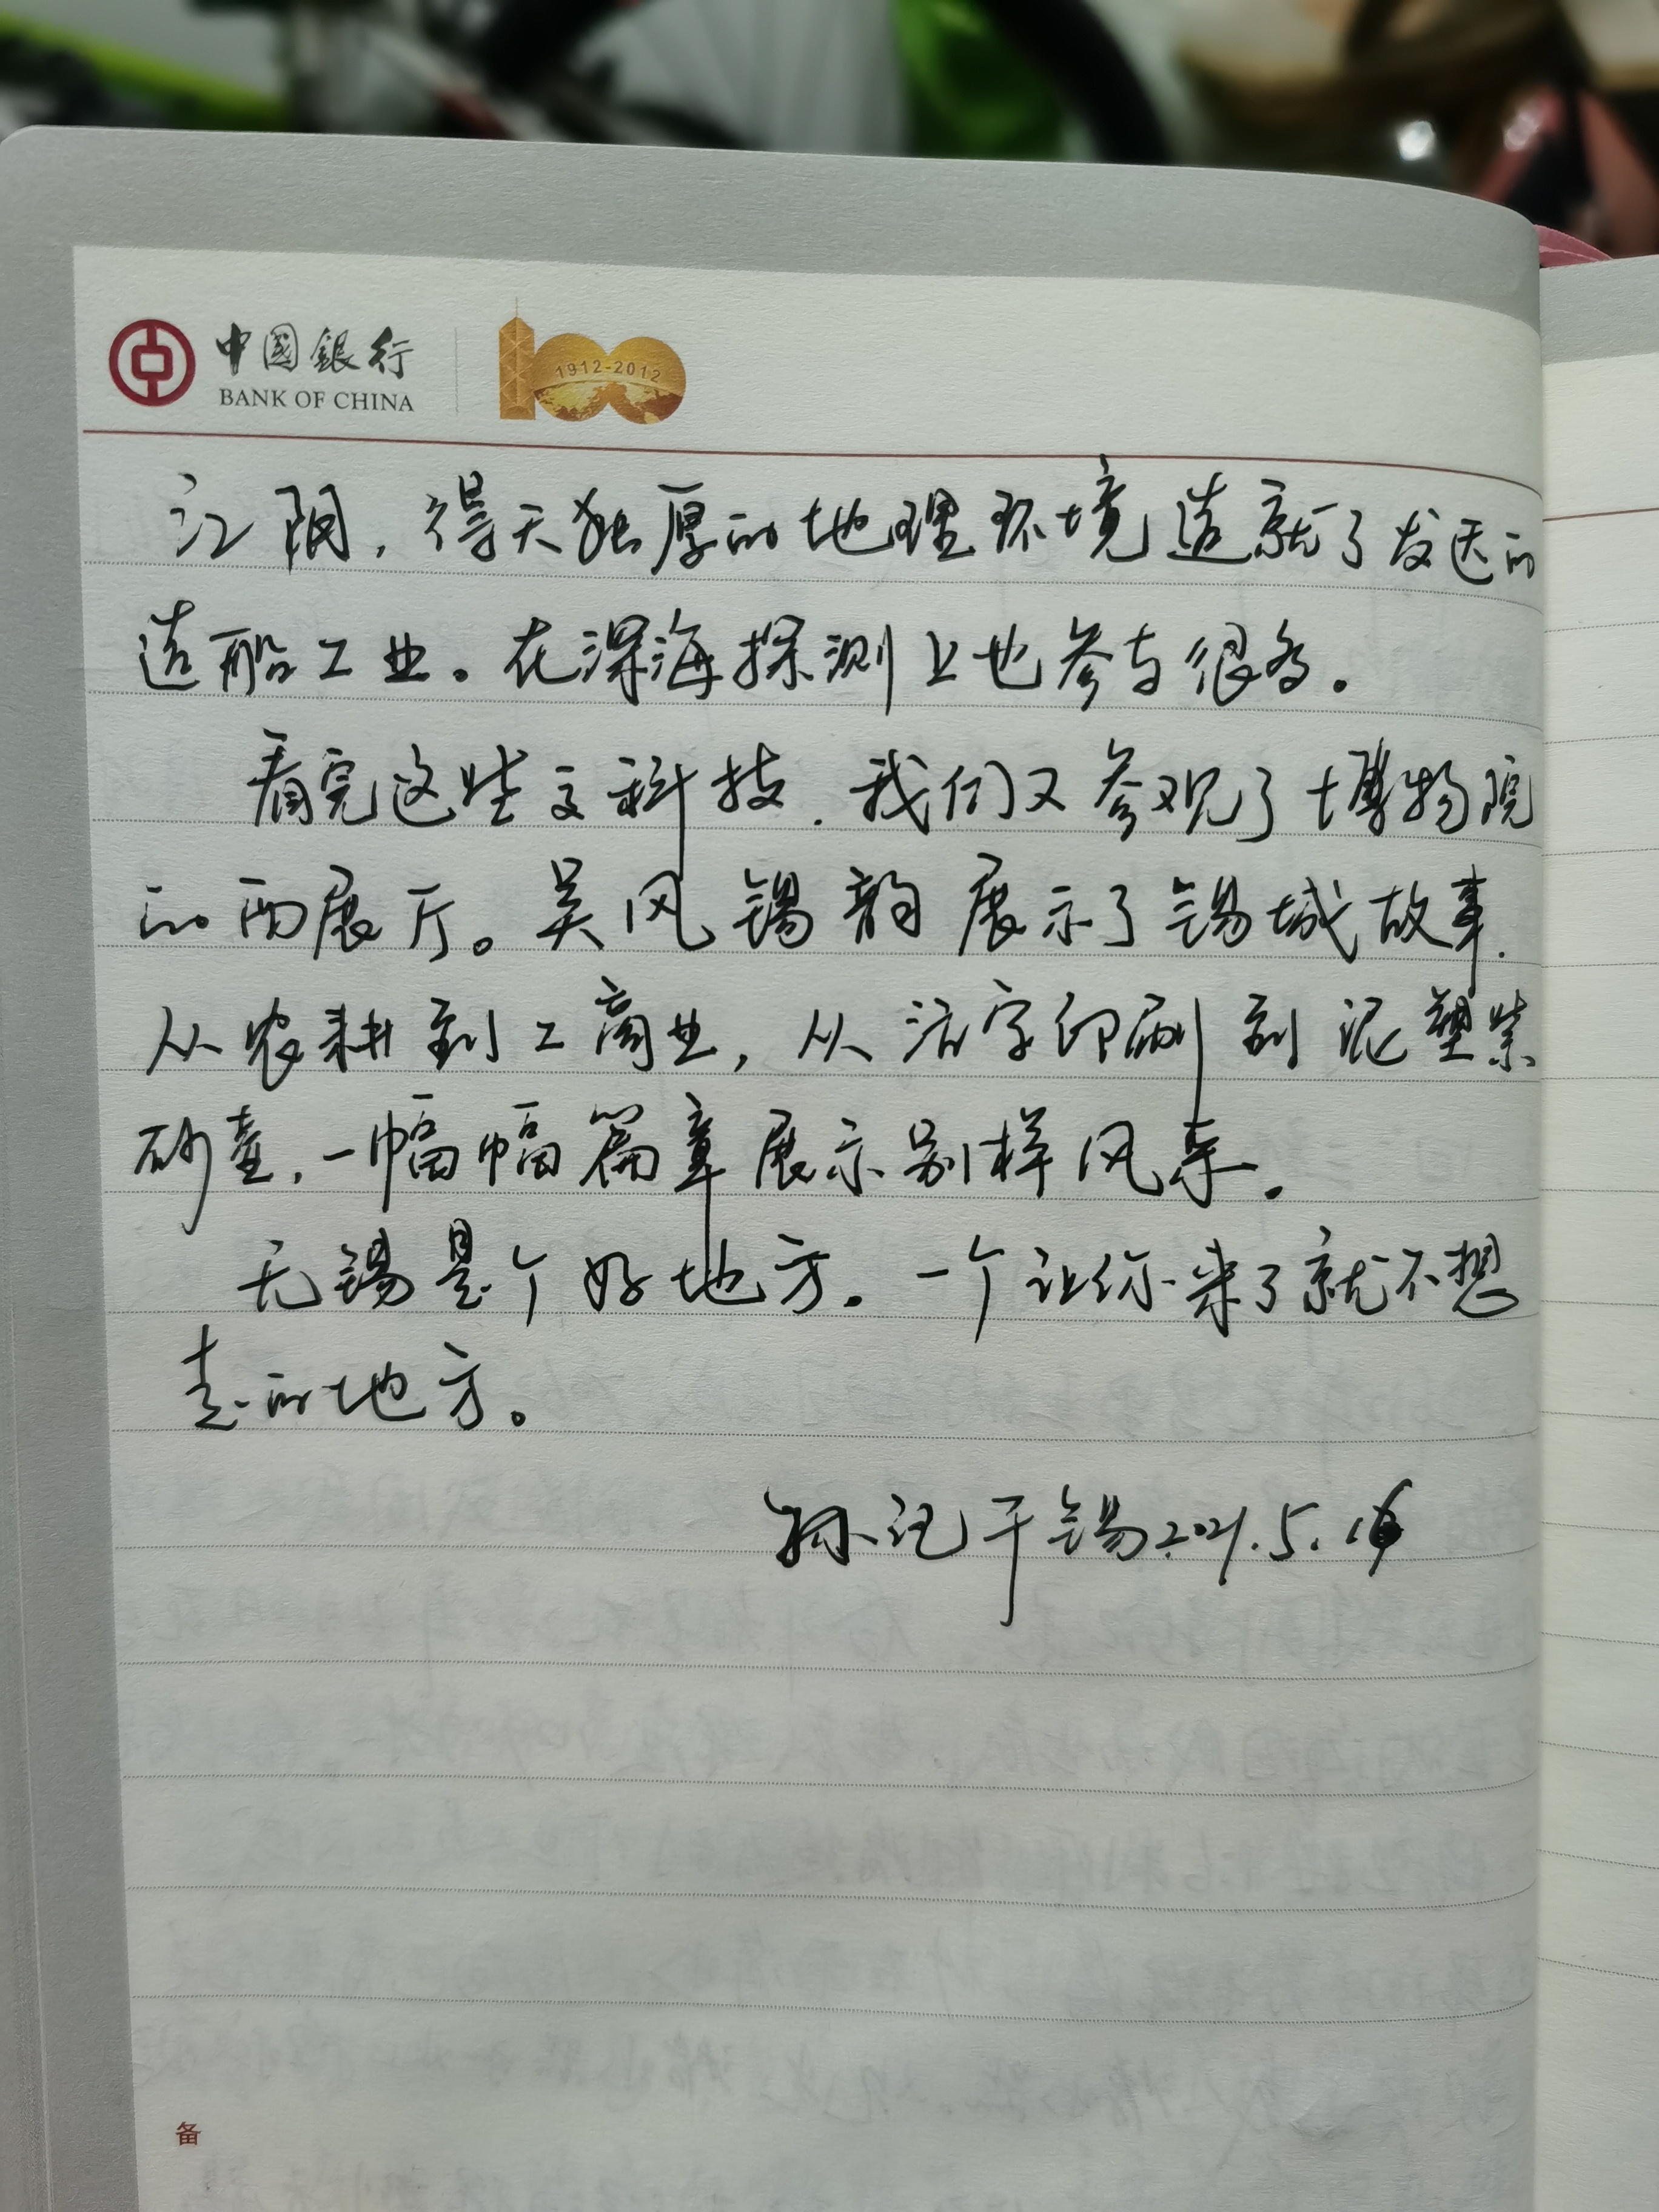 中國銀行
BANK OF CHINA
1912-2012
江阴，得天独厚的地理环境造就了发达的
造船工业。在深海探测上也参与很多。
看完这些文科技，我们又参观了博物院
的西展厅。吴风锡韵展示了锡城故事，
从农耕到工商业，从活字印刷到泥塑紫
砂壶，一幅幅篇章展示别样风采。
无锡是个好地方。一个让你来了就不想
走的地方。
孙记于锡2021.5.
备